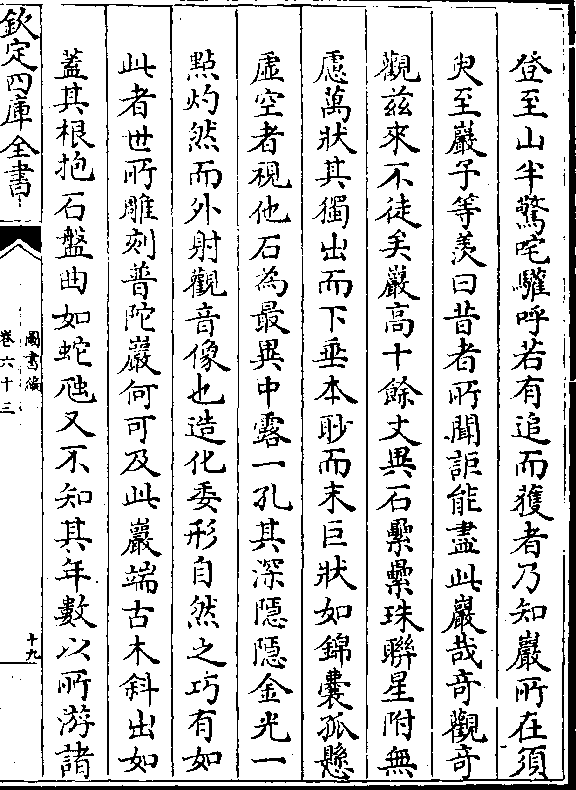 登至山半驚咤驩呼若有追而獲者乃知巖所在須
臾至巖予等羡曰昔者所聞詎能盡此巖哉竒觀竒
觀兹來不徒矣巖高十餘丈異石纍纍珠聯星附無
慮萬狀其獨出而下垂本眇而末巨狀如錦囊孤懸
虛空者視他石為最異中露一孔其深隱隱金光一
㸃灼然而外射觀音像也造化委形自然之巧有如
此者世所雕刻普陀巖何可及此巖端古木斜出如
蓋其根抱石盤曲如蛇虺又不知其年數以所游諸
欽定四庫全書
圖書編
卷六十三
十九